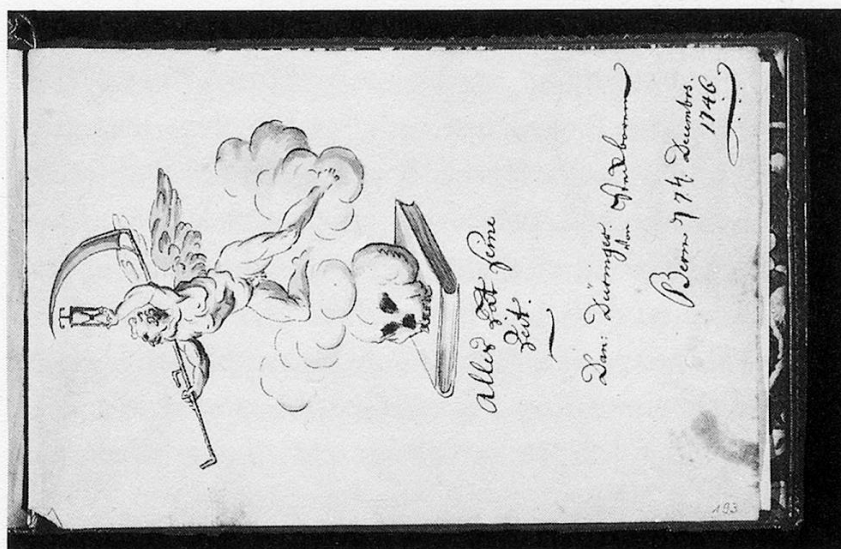 Alles hat seine
Zeit.
Dan: Düringer.
von
Bern d 7t. Decembrs.
1746
193